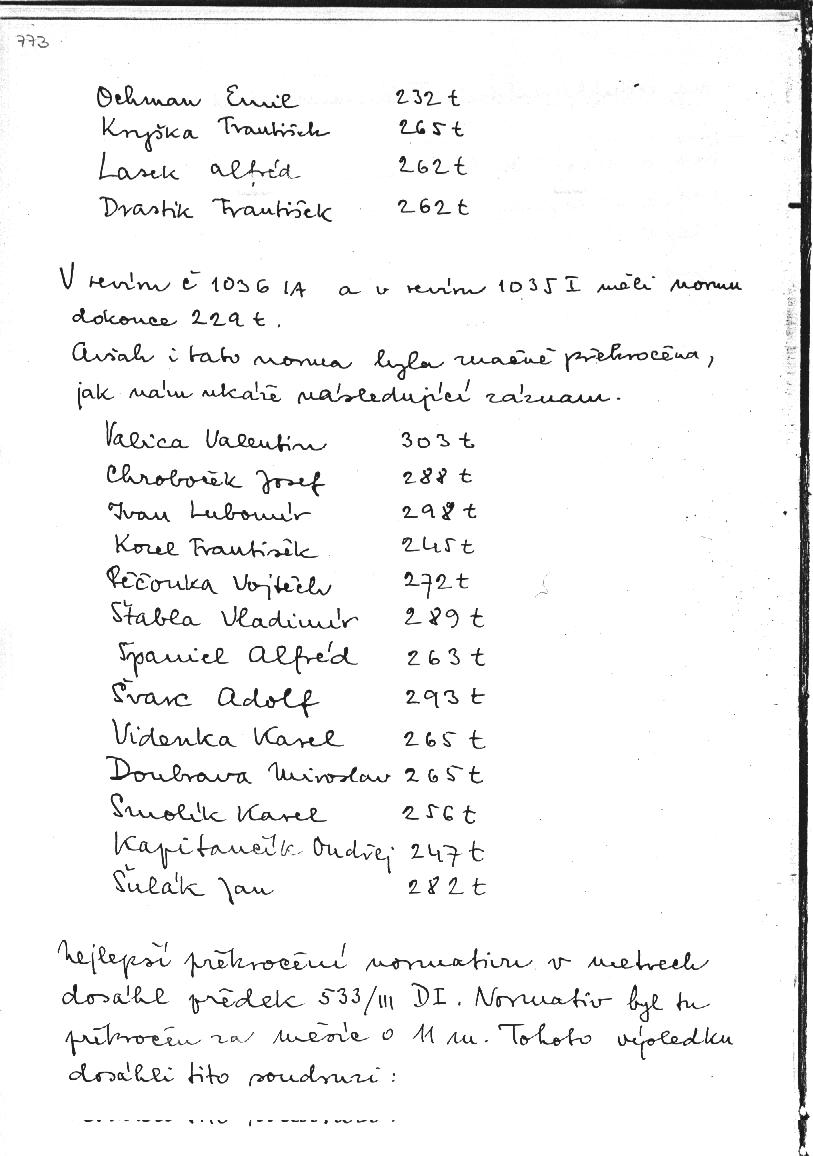 773
Ochman Emil 232 t
Knyška František 265 t
Lasek Alfréd 262 t
Drastik František 262 t
V revíru č 1036 IA a v revíru 1035 I měli normu
dokonce 229 t.
Avšak i tato norma byla značně překročena,
jak nám ukáže následující záznam.
Valica Valentin 303 t
Chroboček Josef 288 t
Ivan Lubomír 298 t
Kozel František 245 t
Pěčonka Vojtěch 272 t
Štabla Vladimír 289 t
Španiel Alfréd 263 t
Švarc Adolf 293 t
Videnka Karel 265 t
Doubrava Miroslav 265 t
Smolík Karel 256 t
Kapitančík Ondřej 247 t
Šulák Jan 282 t
Nejlepší překročení normativu v metrech
dosáhl předek 533/III DI. Normativ byl tu
překročen za měsíc o 11 m. Tohoto výsledku
dosáhli tito soudruzi: